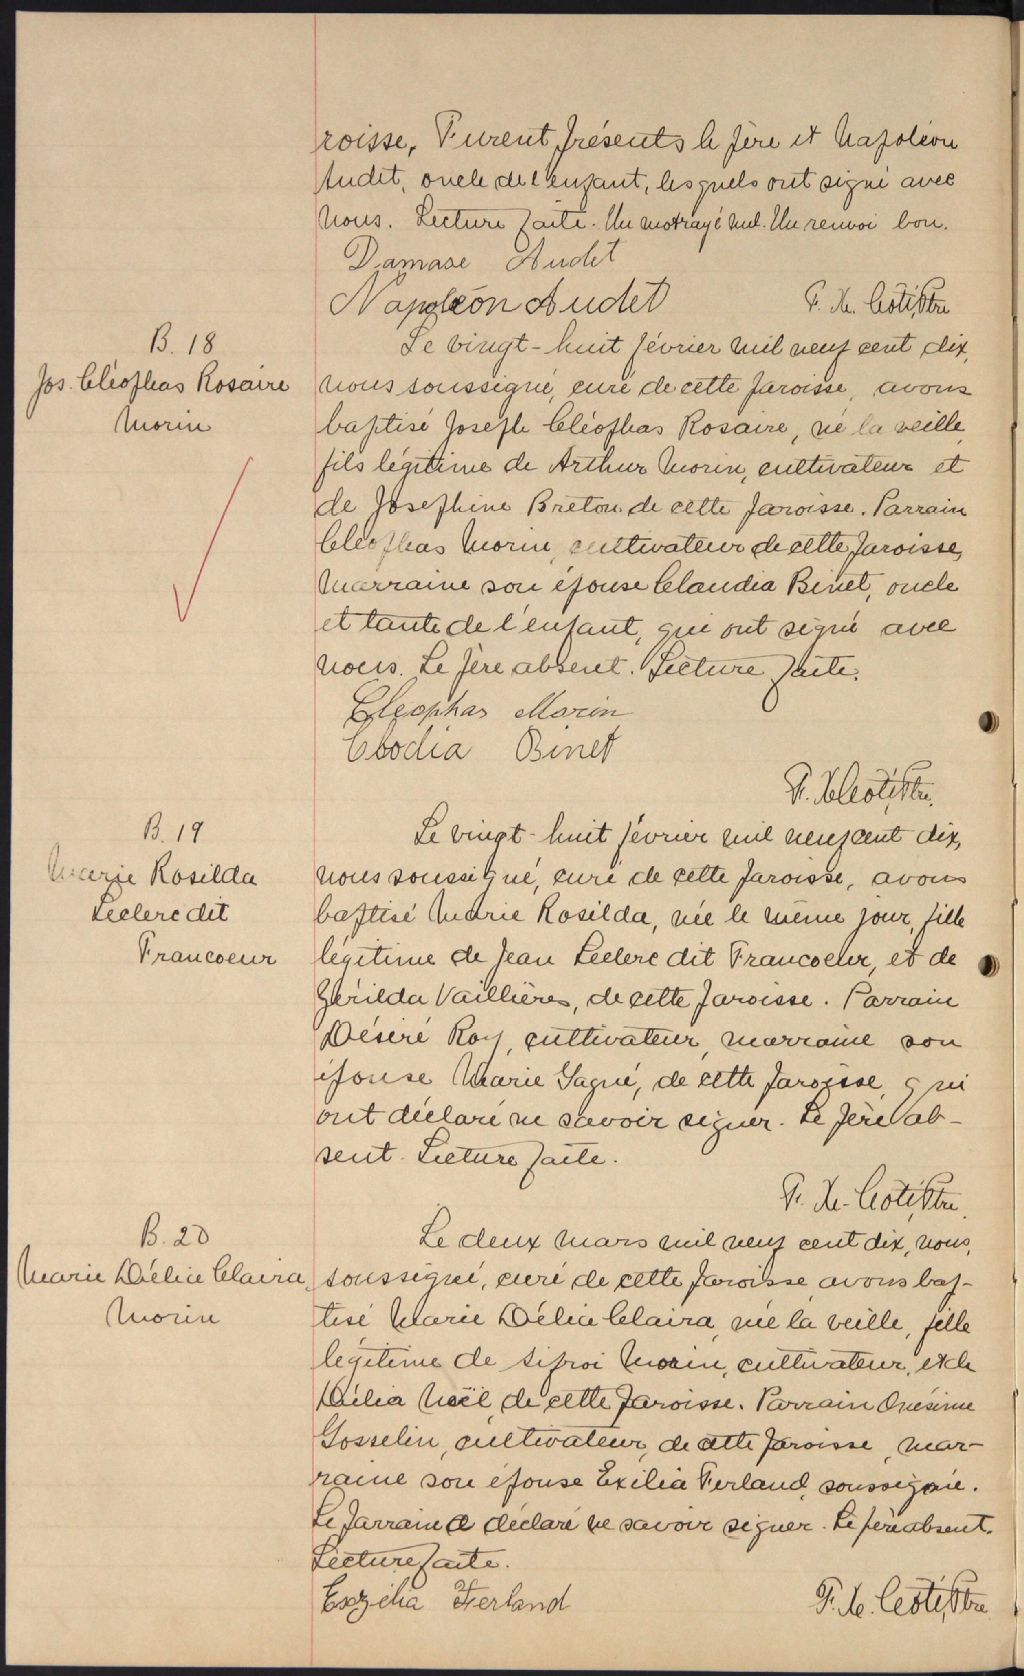 roisse. Furent présents le père et Napoléon
Audet, oncle de l'enfant, lesquels ont signé avec
nous. Lecture faite. Un mot rayé nul. Un renvoi bon.
Damase Audet
Napoléon Audet F. X. Coté, Ptre
B. 18
Jos. Cléophas Rosaire
Morin
Le vingt-huit février mil neuf cent dix,
nous soussigné, curé de cette paroisse, avons
baptisé Joseph Cléophas Rosaire, né la veille,
fils légitime de Arthur Morin, cultivateur et
de Josephine Breton de cette paroisse. Parrain
Cléophas Morin, cultivateur de cette paroisse,
marraine son épouse Claudia Binet, oncle
et tante de l'enfant, qui ont signé avec
nous. Le père absent. Lecture faite.
Cleophas Morin
Clodia Binet
F. X. Coté, Ptre.
B. 19
Marie Rosilda
Leclerc dit
Francoeur
Le vingt-huit février mil neuf cent dix,
nous soussigné, curé de cette paroisse, avons
baptisé Marie Rosilda, née le même jour, fille
légitime de Jean Leclerc dit Francoeur, et de
Zérilda Vaillières, de cette paroisse. Parrain
Désiré Roy, cultivateur, marraine son
épouse Marie Gagné, de cette paroisse, qui
ont déclaré ne savoir signer. Le père ab-
sent. Lecture faite.
F. X. Coté, Ptre.
B. 20
Marie Délia Claira
Morin
Le deux mars mil neuf cent dix, nous,
soussigné, curé de cette paroisse avons bap-
tisé Marie Délia Claira, née la veille, fille
légitime de Sifroi Morin, cultivateur, et de
Délia Noël, de cette paroisse. Parrain Onésime
Gosselin, cultivateur, de cette paroisse, mar-
raine son épouse Exilia Ferland, soussignée.
Le parrain a déclaré ne savoir signer. Le père absent.
Lecture faite.
Exzélia Ferland F. X. Coté, Ptre